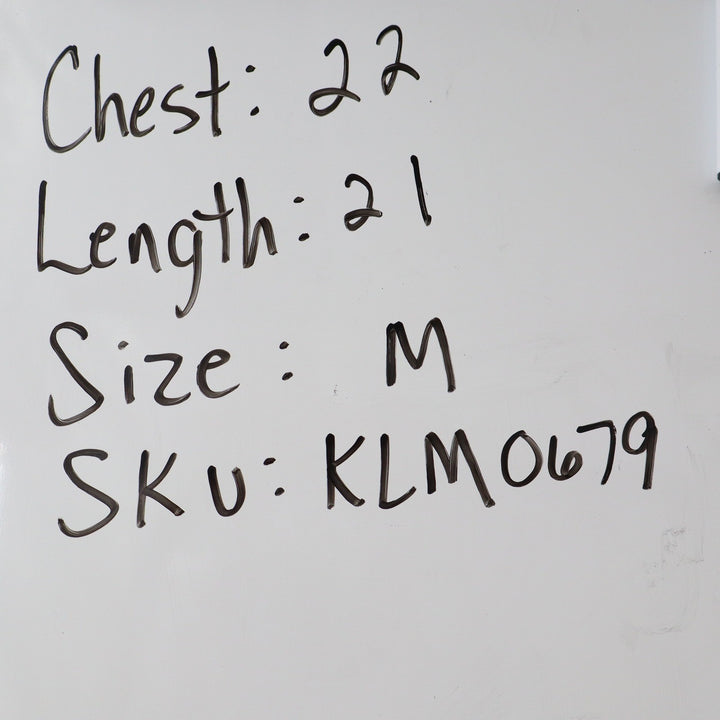 Chest: 22
Length: 21
Size: M
SKU: KLM0679